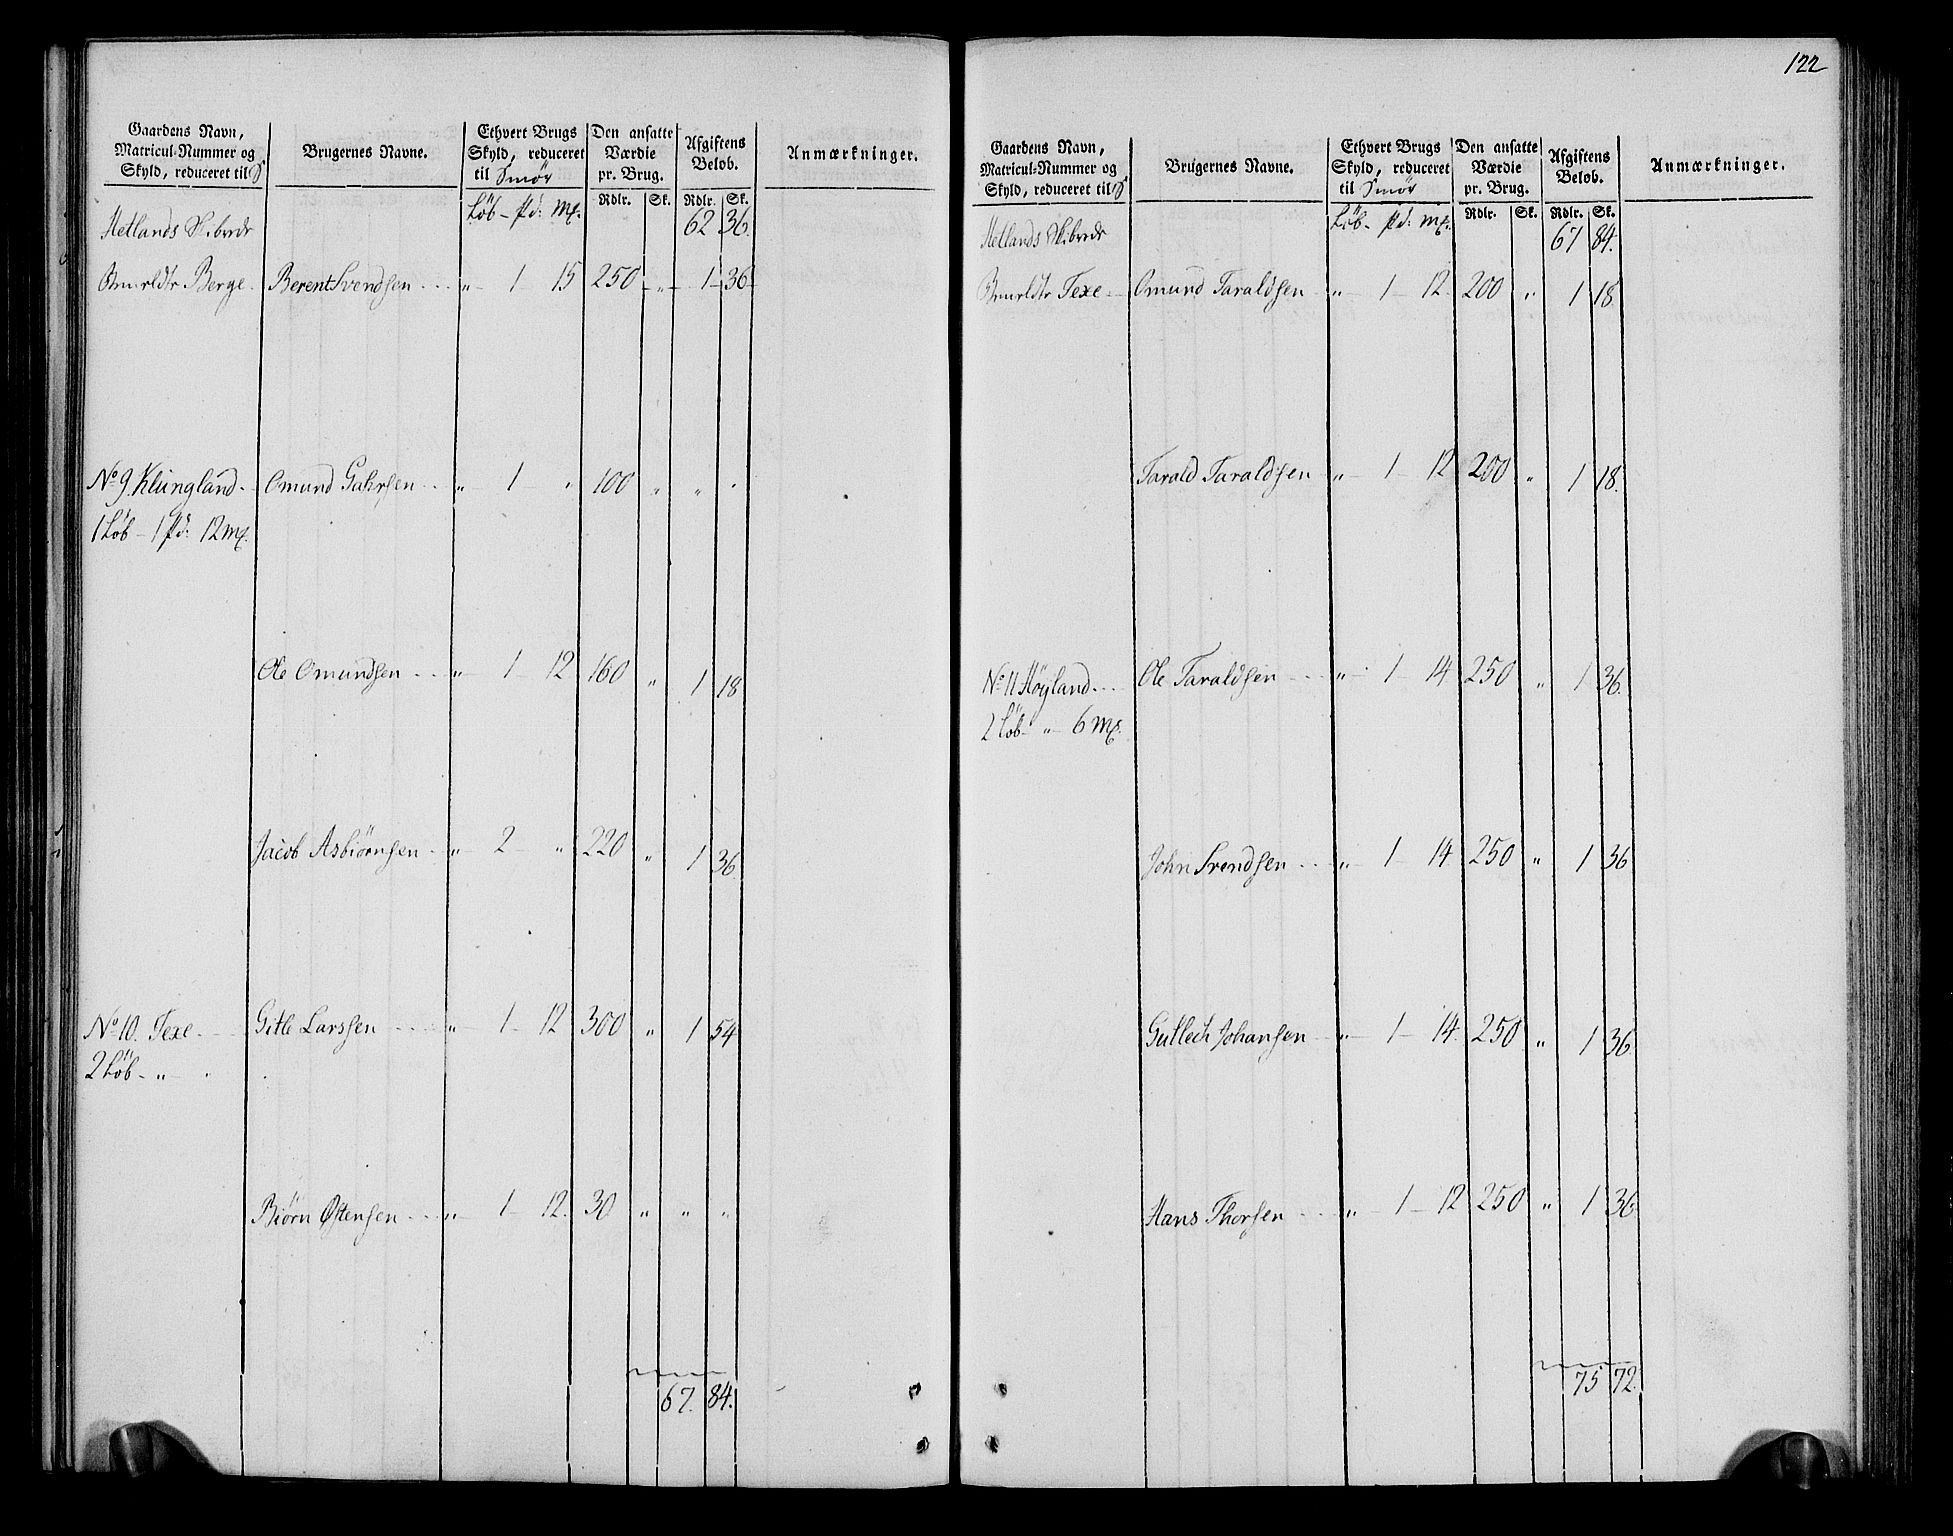 Gaardens Navn,
Matricul-Nummer og
Skyld, reduceret til
Brugernes Navne.
Ethvert Brugs
Skyld, reduceret
til Smör
Den ansatte
Værdie
pr. Brug.
Afgiftens
Beløb.
Anmærkninger.
Löb - Pd: Mk.
Rdlr. Sk. Rdlr. Sk.
Hetlands Skibrede 62 36.
Berge Berent Svendsen " 1 15 250 " 1 36
No 9. Klungland Omund Gahrsen " 1 " 100 " " "
1 Löb - 1 Pd: 12 Mk.
Ole Omundsen " 1 12 160 " 1 18
Jacob Asbiörnsen " 2 " 220 " 1 36
No 10. Texe Gitle Larssen " 1 12 300 " 1 54
2 Löb - "
Biörn Østensen " 1 12. 30 " " "
67. 84.
122
Gaardens Navn,
Matricul-Nummer og
Skyld, reduceret til
Brugernes Navne.
Ethvert Brugs
Skyld, reduceret
til Smör
Den ansatte
Værdie
pr. Brug.
Afgiftens
Beløb.
Anmærkninger.
Löb - Pd: Mk.
Rdlr. Sk. Rdlr. Sk.
Hetlands Skibrede 67 84.
Texe Omund Taraldsen " 1 12 200 " 1 18
Tarald Taraldsen " 1 12 200 " 1 18.
No 11 Høyland Ole Taraldsen " 1 14 250 " 1 36.
2 Löb - " 6 Mk.
John Svendsen " 1 14 250 " 1 36
Gutlech Johansen " 1 14. 250 " 1 36
Hans Thorsen " 1 12 250 " 1 36
75 72.